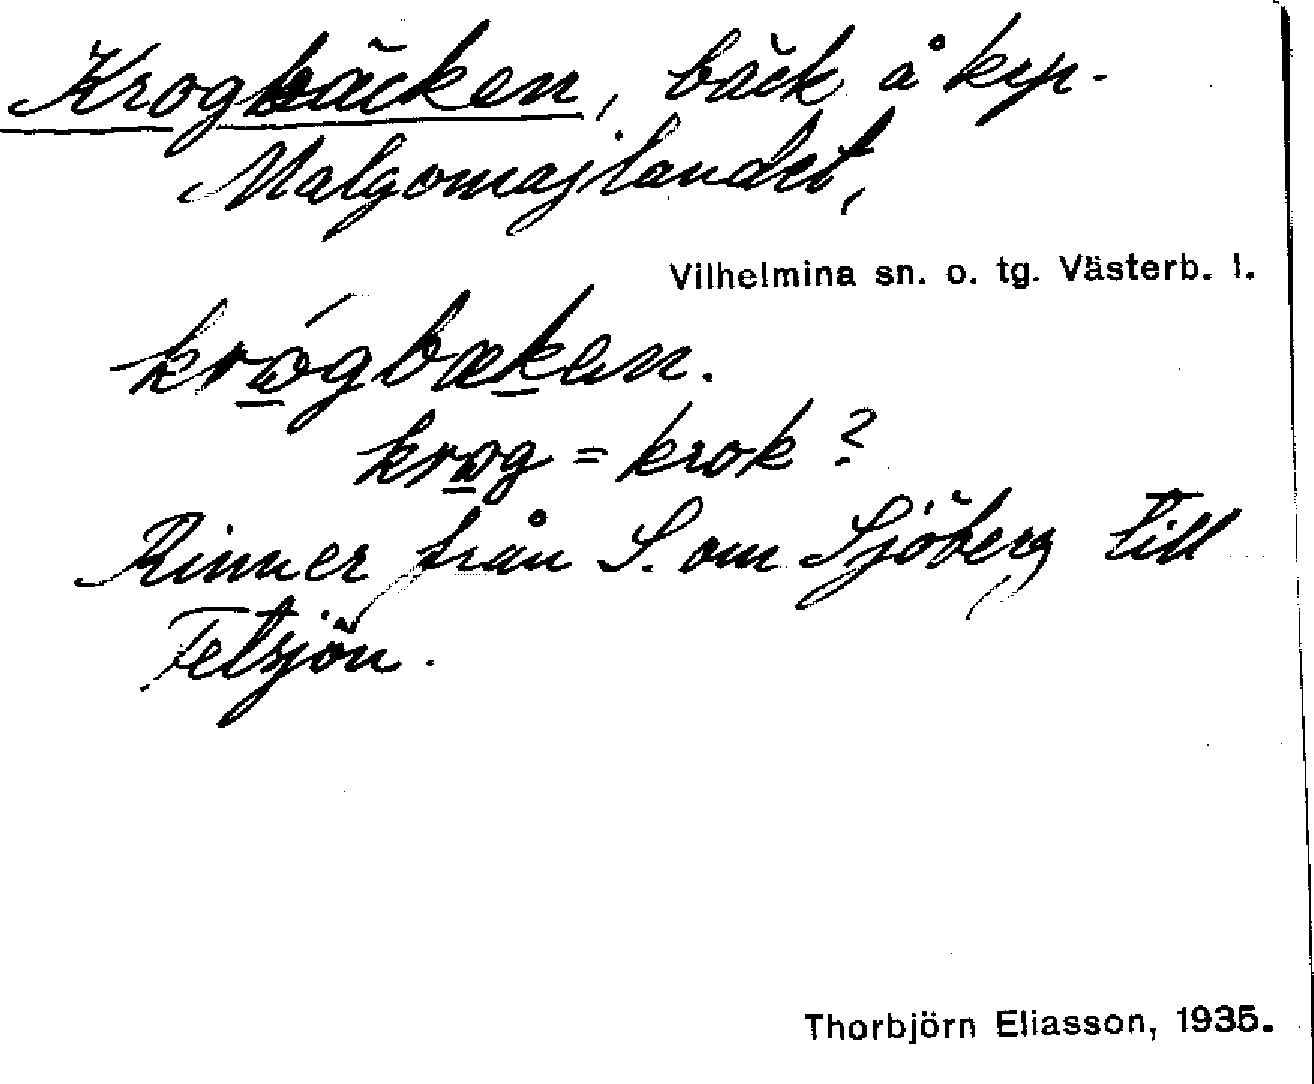 Krogbäcken, bäck å krp.
Malgomajlandet,
Vilhelmina sn. o. tg. Västerb. l.
krǿgbækan.
krøg = krok?
Rinner från S. om Sjöberg till
Fetsjön.
Thorbjörn Eliasson, 1935.